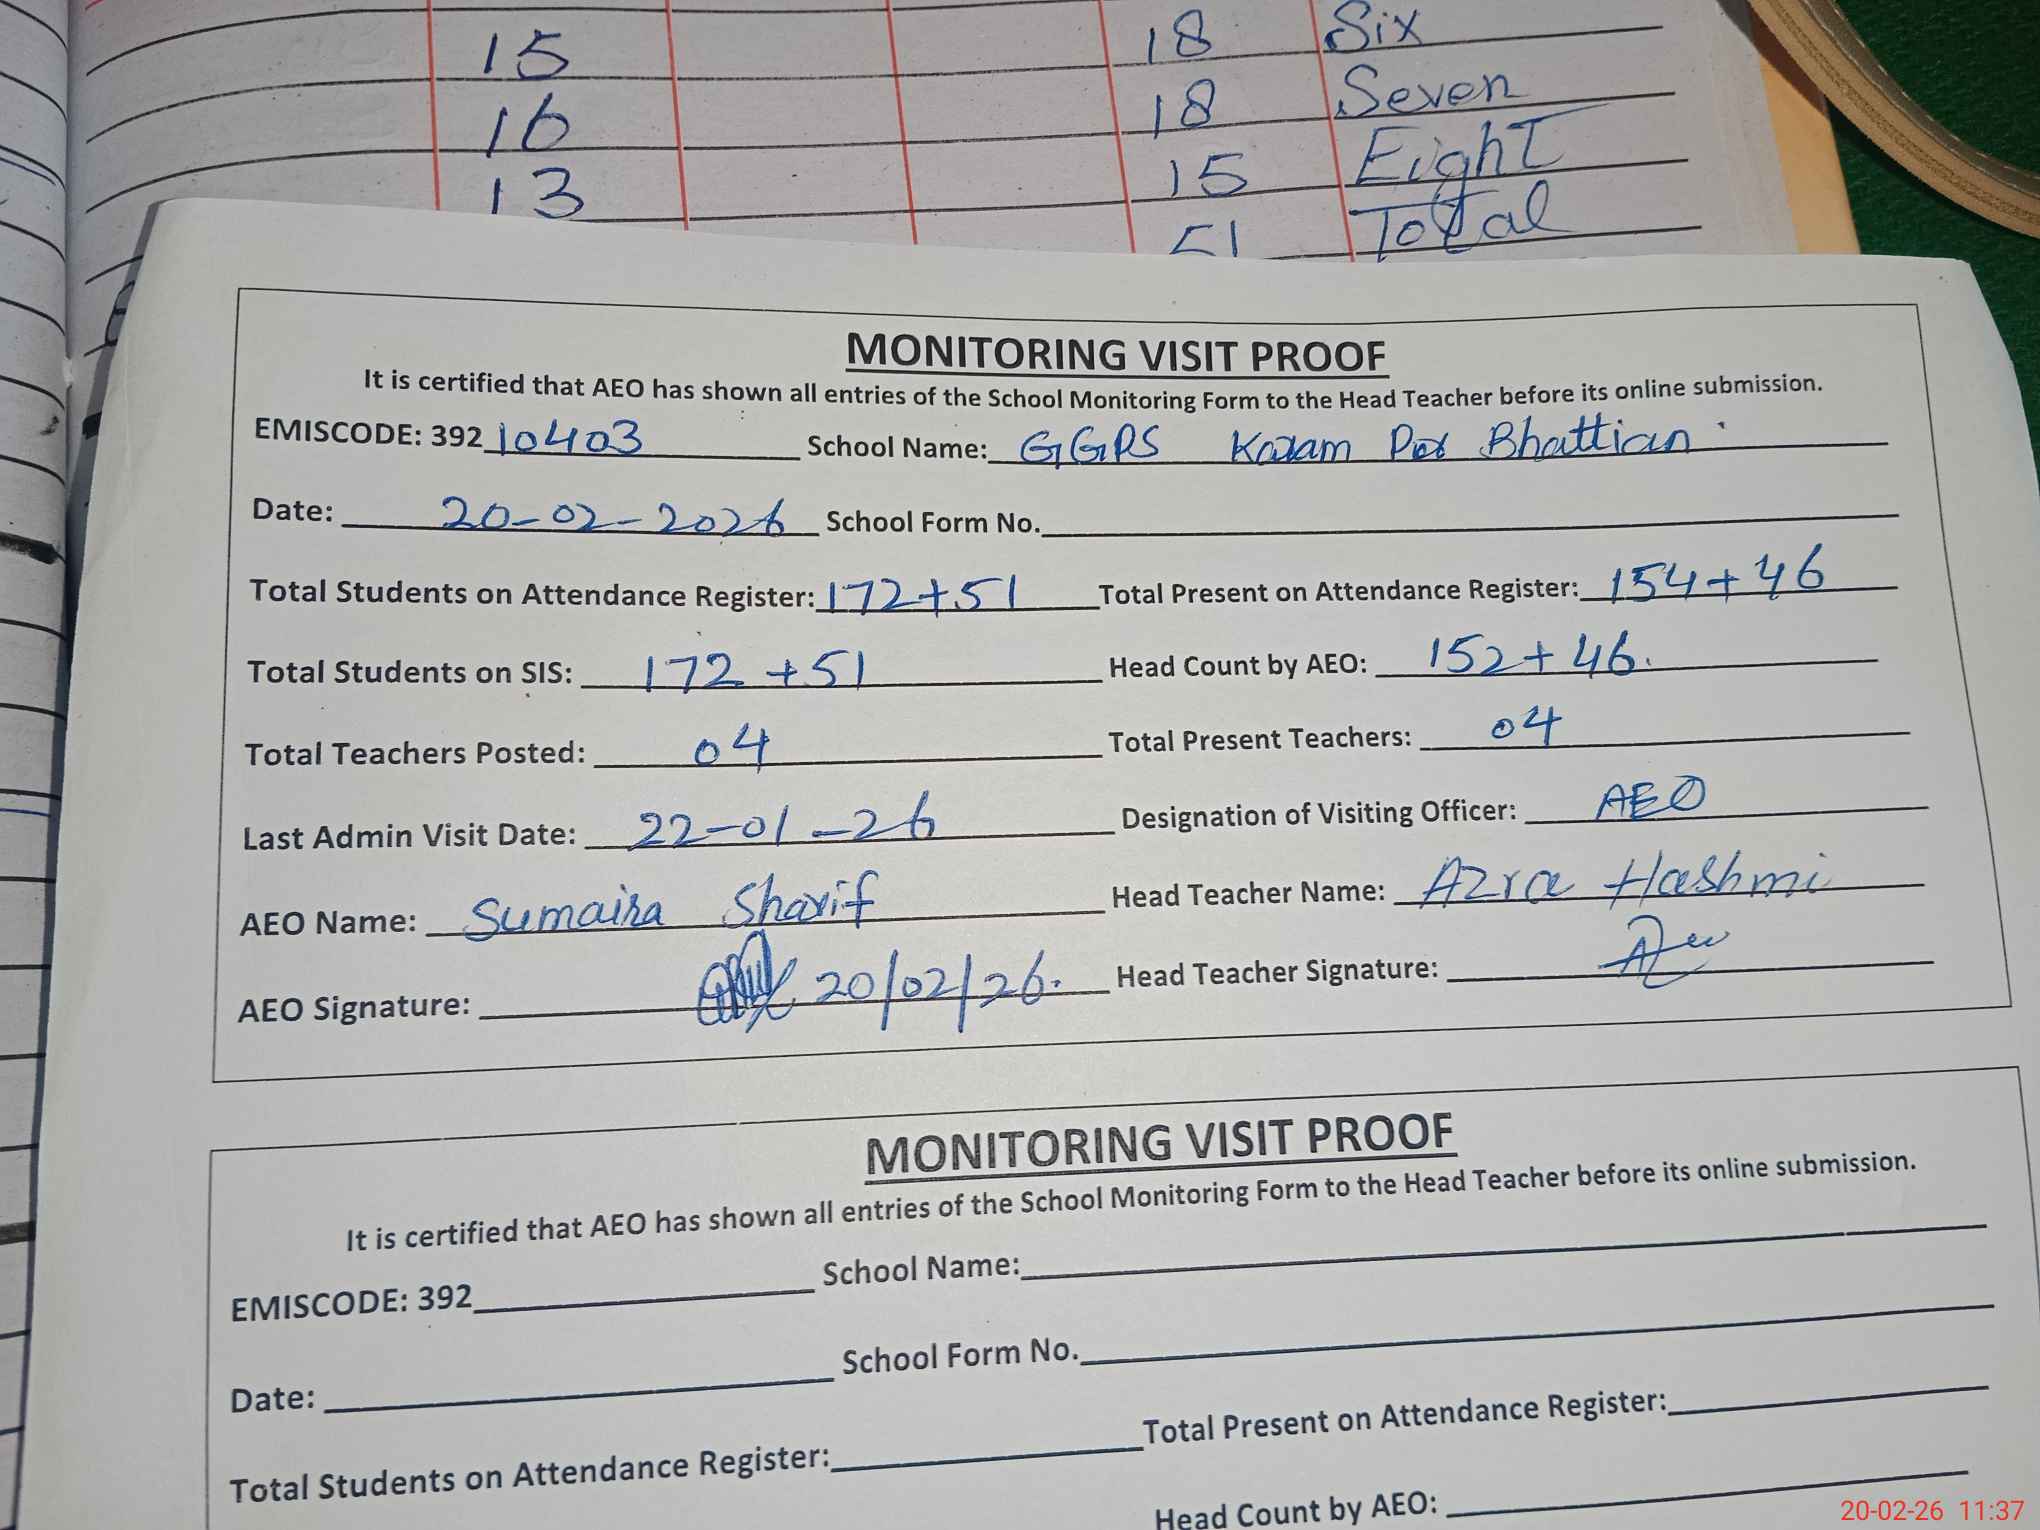 15 18 Six
16 18 Seven
13 15 Eight
51 Total
MONITORING VISIT PROOF
It is certified that AEO has shown all entries of the School Monitoring Form to the Head Teacher before its online submission.
EMISCODE: 392 10403 School Name: GGPS Karam Pur Bhattian
Date: 20-02-2026 School Form No.
Total Students on Attendance Register: 172+51 Total Present on Attendance Register: 154+46
Total Students on SIS: 172+51 Head Count by AEO: 152+46.
Total Teachers Posted: 04 Total Present Teachers: 04
Last Admin Visit Date: 22-01-26 Designation of Visiting Officer: AEO
AEO Name: Sumaira Sharif Head Teacher Name: Azra Hashmi
AEO Signature: 20/02/26. Head Teacher Signature:
MONITORING VISIT PROOF
It is certified that AEO has shown all entries of the School Monitoring Form to the Head Teacher before its online submission.
EMISCODE: 392 School Name:
Date: School Form No.
Total Students on Attendance Register: Total Present on Attendance Register:
Head Count by AEO:
20-02-26 11:37